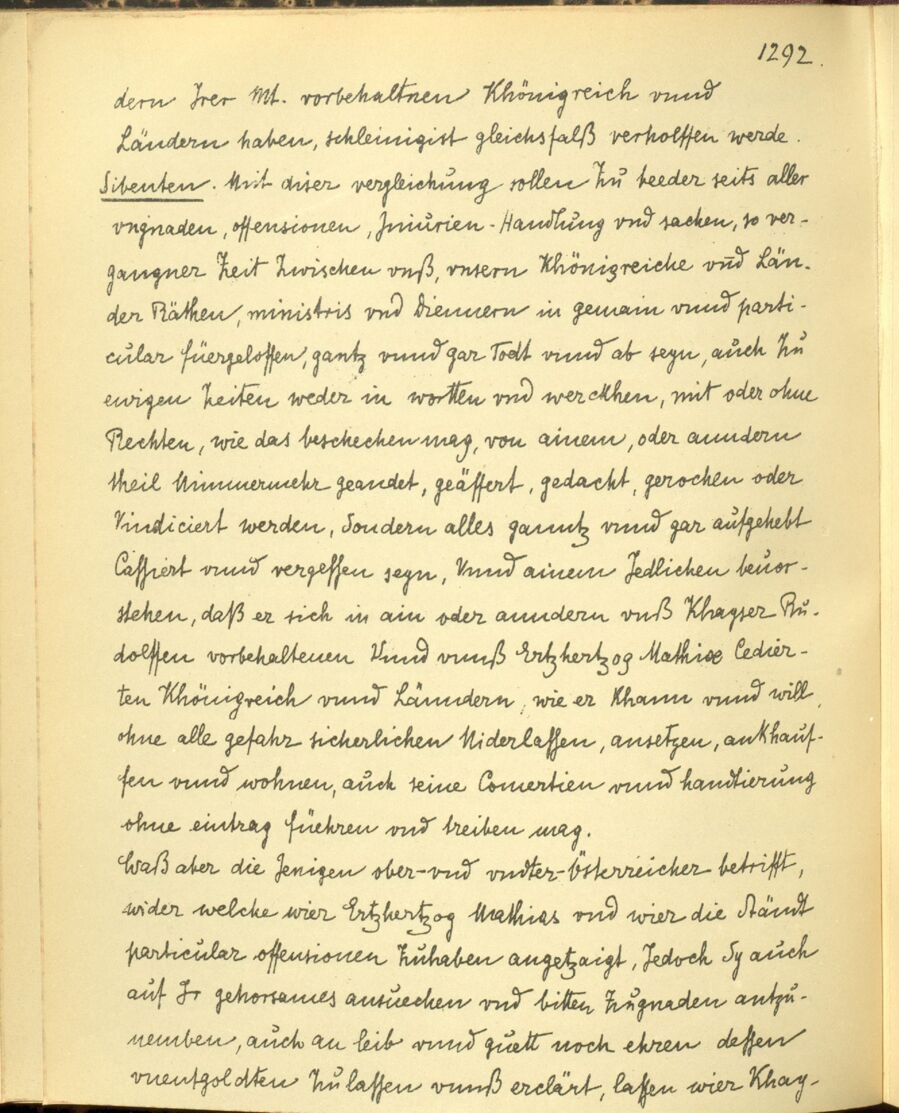 1292.
dern Irer Mt. vorbehaltnen Khönigreich vnnd
Ländern haben, schleinigist gleichsfalß verholffen werde.
Sibenten. Mit diser vergleichung sollen Zu beeder seits aller
vngnaden, offensionen, Iniurien-Handlung vnd sachen, so ver-
gangner Zeit Zwischen vnß, vnsern Khönigreiche vnd Län-
der Räthen, ministris vnd Diennern in gemain vnnd parti-
cular füergeloffen, gantz vnnd gar Todt vnnd ab seyn, auch Zu
ewigen Zeiten weder in wortten vnd werckhen, mit oder ohne
Rechten, wie das beschechen mag, von ainem, oder anndern
theil Nimmermehr geandet, geäffert, gedacht, gerochen oder
Vindiciert werden, Sondern alles ganntz vnnd gar aufgehebt
Cassiert vnnd vergessen seyn, Vnnd ainem Jedlichen beuor-
stehen, daß er sich in ain oder anndern vnß Khayser Ru-
dolffen vorbehaltenen Vnnd vnnß Ertzhertzog Mathiæ Cedier-
ten Khönigreich vnnd Länndern, wie er Khann vnnd will,
ohne alle gefahr sicherlichen Niderlassen, ansetzen, ankhauf-
fen vnnd wohnen, auch seine Comertien vnnd handtierung
ohne eintrag füehren vnd treiben mag.
Waß aber die Jenigen ober-vnd vndter-Österreicher betrifft,
wider welche wier Ertzhertzog Mathias vnd wier die Ständt
particular offensionen Zuhaben angetzaigt, Jedoch Sy auch
auf Ir gehorsames ansuechen vnd bitten Zugnaden antzu-
nemben, auch an leib vnnd guett noch ehren dessen
vnentgoldten Zulassen vnnß erclärt, lassen wier Khay-